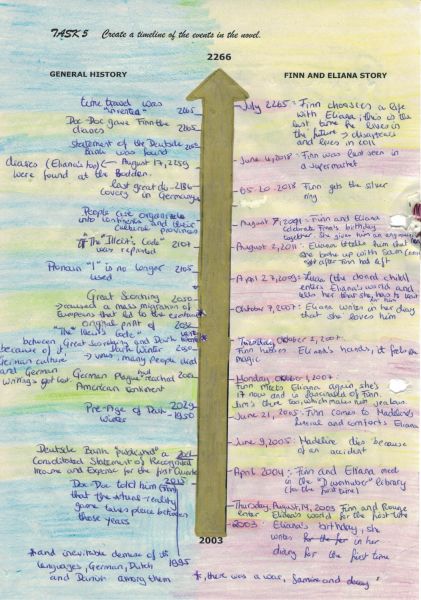 TASK 5 Create a timeline of the events in the novel.
2266
GENERAL HISTORY
FINN AND ELIANA STORY
time travel was
"invented" 2265
Doc-Doc gave Finn the
diaries 2265
statement of the Deutsche
Bank was found
diaries (Eliana's too) ← August 17, 2259
were found at the Budden.
last great dis- 2186
covery in Germany
People are organized
into continents and their
cultural provinces
The "Illicit Code" 2107
was reprinted
Pronoun "I" is no longer 2105
used
Great Scorching 2050
→ caused a mass migration of
Europeans that led to the
original print of
"The Illicit Code"
between Great Scorching and Dark Winter
because of it,
German culture → virus: many people died
and German
writings got lost
German Plague reached
American continent
Pre-Age of Dark 2029
winter 1950
Deutsche Bank "published" a
Consolidated Statement of Recognised
Income and Expense for the first Quarter
2015
Doc-Doc told him (Finn)
that the virtual-reality
game takes place between
those years
1995
* and inevitable demise of its
languages, German, Dutch
and Danish among them
July 2265: Finn chooses a life
with Eliana, this is the
last time he lives in
the future → disappears
and lives in 2011
June 4, 2018: Finn was last seen in
a supermarket
05.20.2018 Finn gets the silver
ring
August 7, 2011: Finn and Eliana
celebrate Finn's birthday
together. She gives him an
August 2, 2011: Eliana tells him that
she broke up with
after Finn had left
April 27, 2009:
enters Eliana's world and
tells her that she has to
Oktober 7, 2007: Eliana writes in her diary
that she loves him
Thursday, October 2, 2007:
Finn Eliana's hands, it felt like
magic
Monday, October 1, 2007:
Finn meets Eliana again she's
17 now and is fascinated of Finn.
Jim's there too, which makes him jealous
June 21, 2005: Finn comes to Madeleine's
funeral and comforts Eliana
June 9, 2005: Madeline dies because of
an accident
April 2004: Finn and Eliana meet
in the library
(for the first time)
Thursday, August, 14, 2003 Finn and Rouge
enter Eliana's world for the first time
2003: Eliana's birthday, she
writes for the for in her
diary for the first time
2003
*, there was a war, famine and decay"